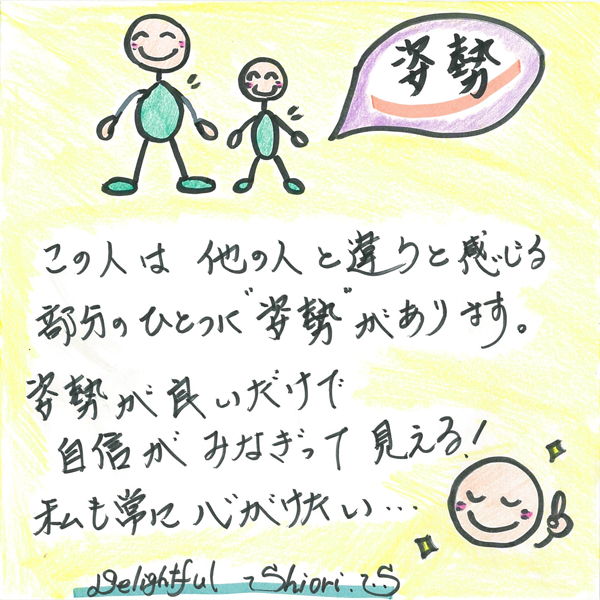 姿勢
この人は 他の人と違うと感じる
部分のひとつに"姿勢"があります。
姿勢が良いだけで
自信が みなぎって 見える!
私も常に 心がけたい…
Delightful Shiori.S